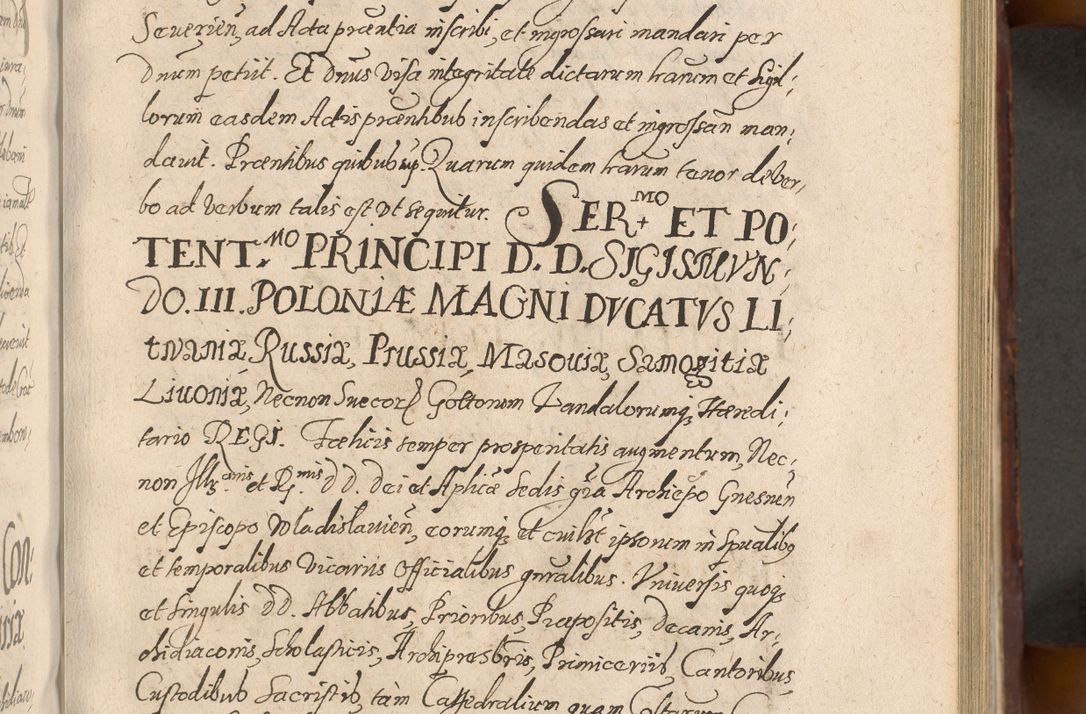 Seuerien, ad Acta præntia inscribi, et ingrossari mandari per
Dnum petiit. Et Dnus visa integritate dictarum lrarum et Sigil,
lorum easdem Actis præntibus inscribendas et ingrossan man,
dauit. Præntibus quibus sup. Quarum quidem lrarum tenor de ver,
bo ad verbum talis est vt sequitur. SER.MO ET PO,
TENT.MO PRINCIPI D. D. SIGISMVN,
DO. III. POLONIÆ MAGNI DVCATVS LI,
tuaniæ Russiæ, Prussiæ, Masouiæ, Samogitiæ
Liuoniæ, Necnon Suecor Gottorum Vandalorumq, Hæredi,
tario REGI. Fælicis semper prosperitatis augmentum, Nec,
non Illr.mis et R.mis DD. Dei et Aplicæ Sedis gra Archiepo Gnesnen
et Episcopo Wladislauien, eorumq, et cuilbt ipsorum in spualibq
et temporalibus Vicariis Officialibus gnralibus. Vniuersis quoq,
et singulis DD. Abbatibus, Prioribus, Præpositis, Decanis, Ar,
chidiaconis, Scholasticis, Archipresbris, Primiceriis, Cantoribus,
Custodibus Sacristis, tam Cathedralium quam